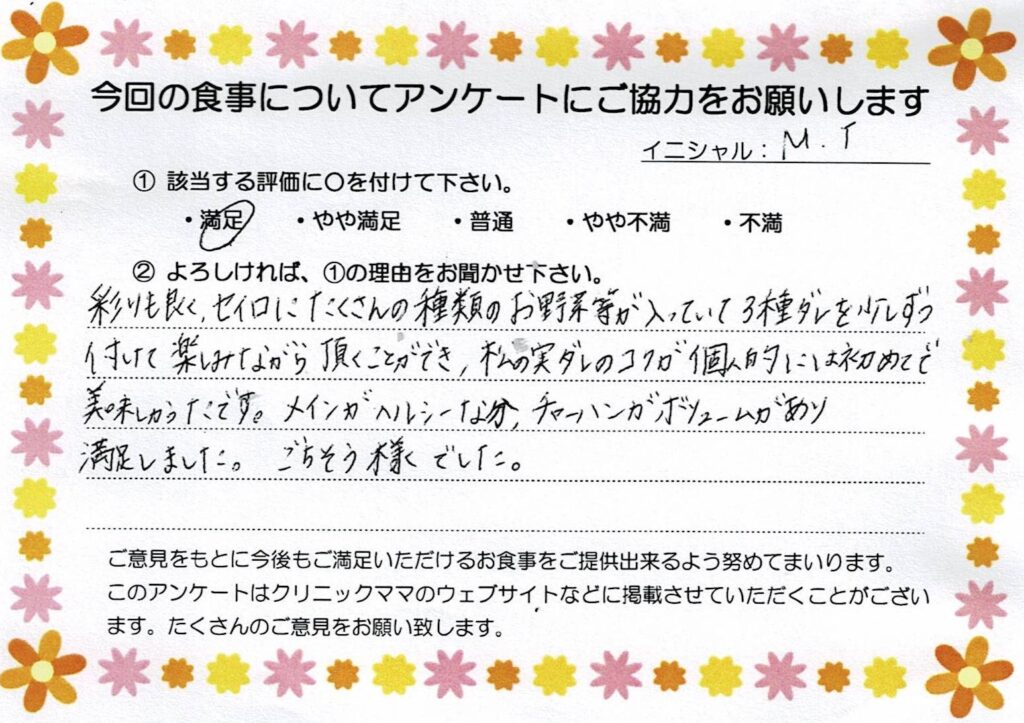 今回の食事についてアンケートにご協力をお願いします
イニシャル： M.T
① 該当する評価に〇を付けて下さい。
・満足 ・やや満足 ・普通 ・やや不満 ・不満
② よろしければ、①の理由をお聞かせ下さい。
彩りも良く、セイロにたくさんの種類のお野菜等が入っていて3種ダレを少しずつ
付けて楽しみながら頂くことができ、松の実ダレのコクが個人的には初めてで
美味しかったです。メインがヘルシーな分、チャーハンがボリュームがあり
満足しました。ごちそう様でした。
ご意見をもとに今後もご満足いただけるお食事をご提供出来るよう努めてまいります。
このアンケートはクリニックママのウェブサイトなどに掲載させていただくことがござい
ます。たくさんのご意見をお願い致します。